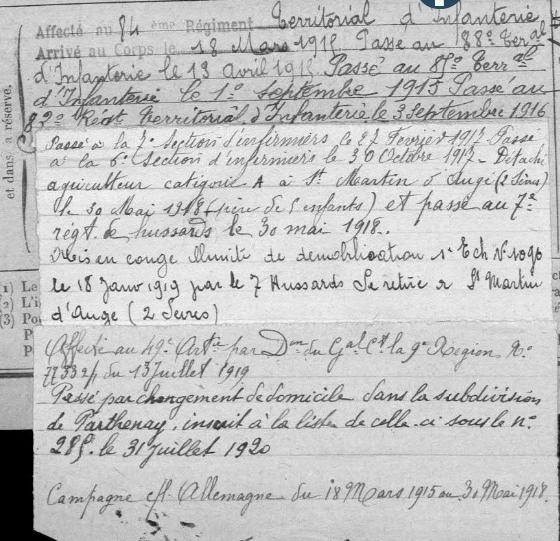 Affecté au 84 ème Régiment Territorial d'Infanterie
Arrivé au Corps le 18 Mars 1915. Passé au 88e Teral
d'Infanterie le 13 avril 1915. Passé au 85e Terral
d'Infanterie le 1er septembre 1915 Passé au
82e Regt Territorial d'Infanterie le 3 septembre 1916
Passé à la 7e Section d'infirmiers le 27 Fevrier 1917 Passé
à la 6e Section d'infirmiers le 30 Octobre 1917 - Détaché
agriculteur catégorie A à St Martin d'Augé (2 Sèvres)
le 30 Mai 1918 (père de 5 enfants) et passé au 7e
régt de hussards le 30 mai 1918.
Mis en congé illimité de démobilisation 1e Ech No 1090
le 18 Janv 1919 par le 7 Hussards Se retire a St Martin
d'Auge (2 Sevres)
Affecté au 49e Artie par Don du Gal Ct la 9e Region No
du 13 Juillet 1919
Passé par changement de domicile dans la subdivision
de Parthenay, inscrit à la liste de celle-ci sous le no
285. le 31 juillet 1920
Campagne cft. Allemagne du 18 Mars 1915 au 30 Mai 1918.
et dans a réserve.
(1) Le
(2) L'i
(3) Po
P
P